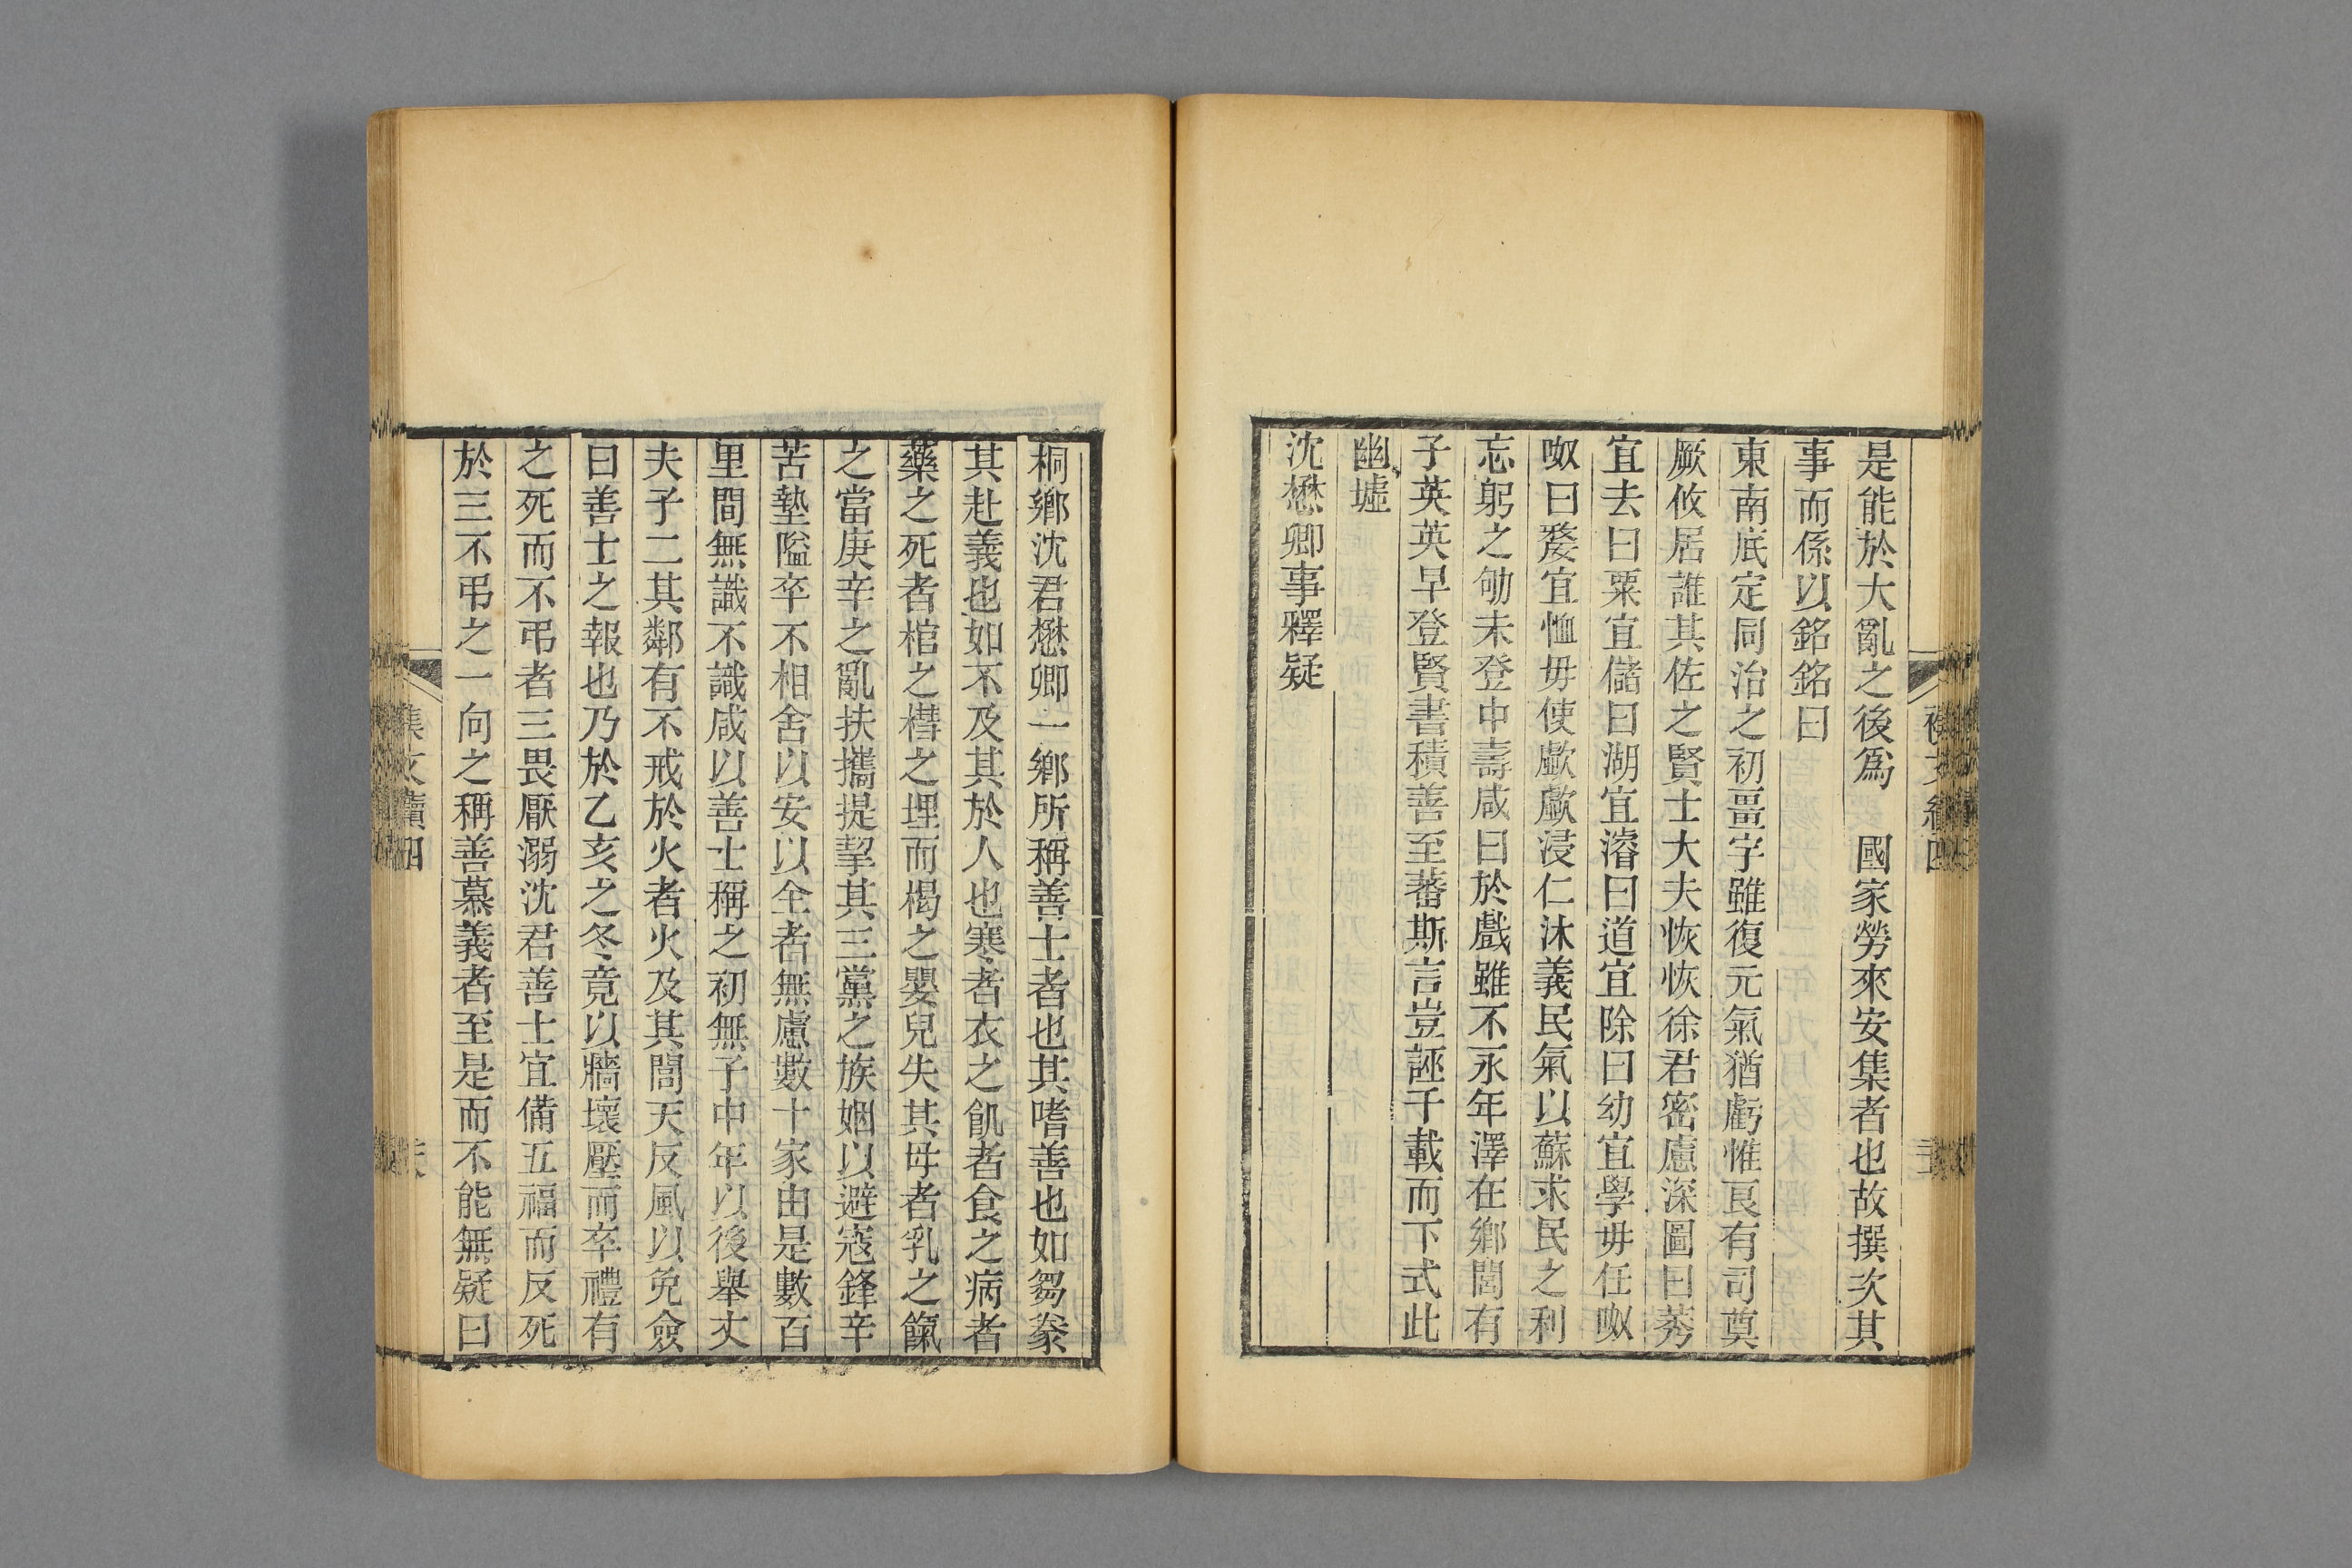 是能於大亂之後爲　國家勞來安集者也故撰次其
事而係以銘銘曰
東南底定同治之初畺字雖復元氣猶虧惟良有司奠
厥攸居誰其佐之賢士大夫恢恢徐君密慮深圖曰莠
宜去曰粟宜儲曰湖宜濬曰道宜除曰幼宜學毋任呶
呶曰嫠宜恤毋使歔歔浸仁沐義民氣以蘇求民之利
忘躬之劬未登中壽咸曰於戲雖不永年澤在鄉閭有
子英英早登賢書積善至蕃斯言豈誣千載而下式此
幽墟
沈懋卿事釋疑
桐鄉沈君懋卿一鄉所稱善士者也其嗜善也如芻豢
其赴義也如不及其於人也寒者衣之飢者食之病者
藥之死者棺之槥之埋而楬之嬰兒失其母者乳之餼
之當庚辛之亂扶攜提挈其三黨之族姻以避寇鋒辛
苦墊隘卒不相舍以安以全者無慮數十家由是數百
里間無識不識咸以善士稱之初無子中年以後舉丈
夫子二其鄰有不戒於火者火及其閭天反風以免僉
曰善士之報也乃於乙亥之冬竟以牆壞壓而卒禮有
之死而不弔者三畏厭溺沈君善士宜備五福而反死
於三不弔之一向之稱善慕義者至是而不能無疑曰